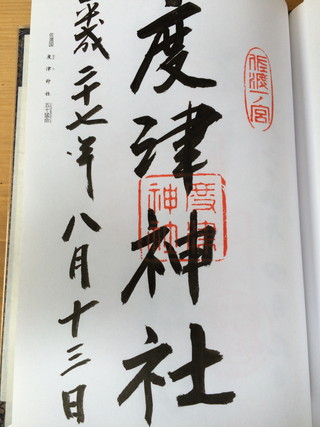 佐渡一ノ宮
度津神社
度津
神社
平成二十七年八月十三日
佐渡國 度津神社